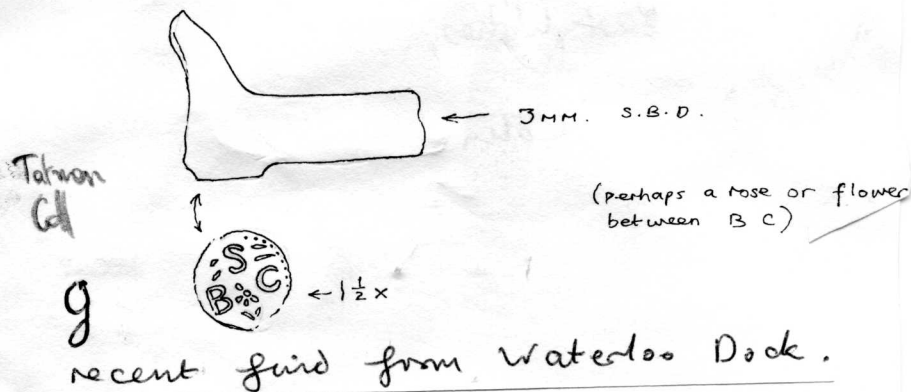 3MM. S.B.D.
Tatman
Coll
(perhaps a rose or flower
between B C)
S
B C
← 1½ x
g
recent find from Waterloo Dock.